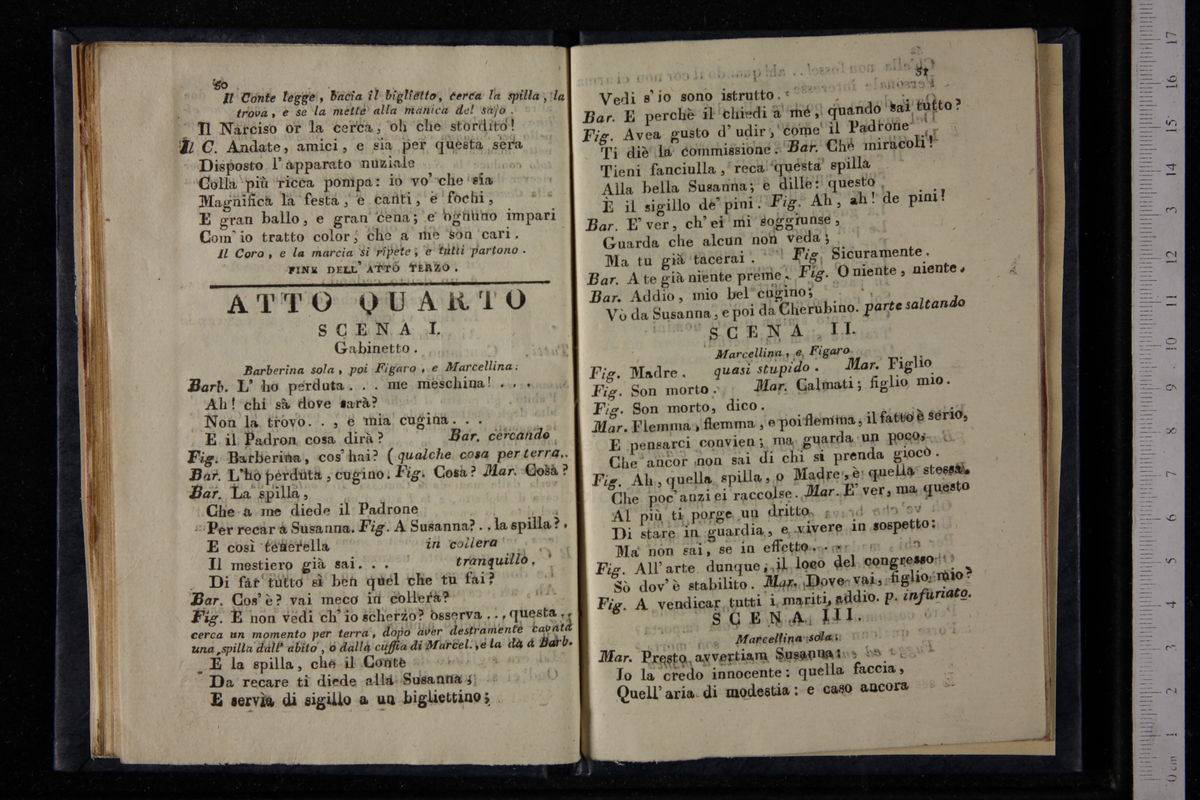 50
Il Conte legge, bacia il biglietto, cerca la spilla, la
trova, e se la mette alla manica del sajo.
Il Narciso or la cerca, oh che stordito!
Il C. Andate, amici, e sia per questa sera
Disposto l'apparato nuziale
Colla più ricca pompa: io vo' che sia
Magnifica la festa, e canti, e fochi,
E gran ballo, e gran cena; e ognuno impari
Com'io tratto color, che a me son cari.
Il Coro, e la marcia si ripete, e tutti partono.
FINE DELL' ATTO TERZO.
ATTO QUARTO
SCENA I.
Gabinetto.
Barberina sola, poi Figaro, e Marcellina:
Barb. L' ho perduta... me meschina!...
Ah! chi sà dove sarà?
Non la trovo.., e mia cugina...
E il Padron cosa dirà? Bar. cercando
Fig. Barberina, cos'hai? (qualche cosa per terra,.
Bar. L'hò perduta, cugino. Fig. Cosa? Mar. Cosa?
Bar. La spilla,
Che a me diede il Padrone
Per recar a Susanna. Fig. A Susanna?.. la spilla?.
E così tenerella in collera
Il mestiero già sai... tranquillo.
Di far tutto sì ben quel che tu fai?
Bar. Cos'è? vai meco in collera?
Fig. E non vedi ch'io scherzo? osserva... questa..
cerca un momento per terra, dopo aver destramente cavata
una spilla dall' abito, o dalla cuffia di Marcel., e la dà a Barb.
E la spilla, che il Conte
Da recare ti diede alla Susanna;
E servìa di sigillo a un bigliettino;
51
Vedi s'io sono istrutto.
Bar. E perchè il chiedi a me, quando sai tutto?
Fig. Avea gusto d'udir, come il Padrone
Ti diè la commissione. Bar. Che miracoli!
Tieni fanciulla, reca questa spilla
Alla bella Susanna; e dille: questo
È il sigillo de' pini. Fig. Ah, ah! de pini!
Bar. E' ver, ch'ei mi soggiunse,
Guarda che alcun non veda;
Ma tu già tacerai. Fig Sicuramente.
Bar. A te già niente preme. Fig. O niente, niente.
Bar. Addio, mio bel cugino;
Vò da Susanna, e poi da Cherubino. parte saltando
SCENA II.
Marcellina, e Figaro
Fig. Madre. quasi stupido. Mar. Figlio
Fig. Son morto. Mar. Calmati; figlio mio.
Fig. Son morto, dico.
Mar. Flemma, flemma, e poi flemma, il fatto è serio,
E pensarci convien; ma guarda un poco,
Che ancor non sai di chi si prenda gioco.
Fig. Ah, quella spilla, o Madre, è quella stessa.
Che poc'anzi ei raccolse. Mar. E' ver, ma questo
Al più ti porge un dritto
Di stare in guardia, e vivere in sospetto:
Ma non sai, se in effetto...
Fig. All'arte dunque, il loco del congresso
Sò dov'è stabilito. Mar. Dove vai, figlio mio?
Fig. A vendicar tutti i mariti, addio. p. infuriato.
SCENA III.
Marcellina sola:
Mar. Presto avvertiam Susanna:
Jo la credo innocente: quella faccia,
Quell'aria di modestia: e caso ancora